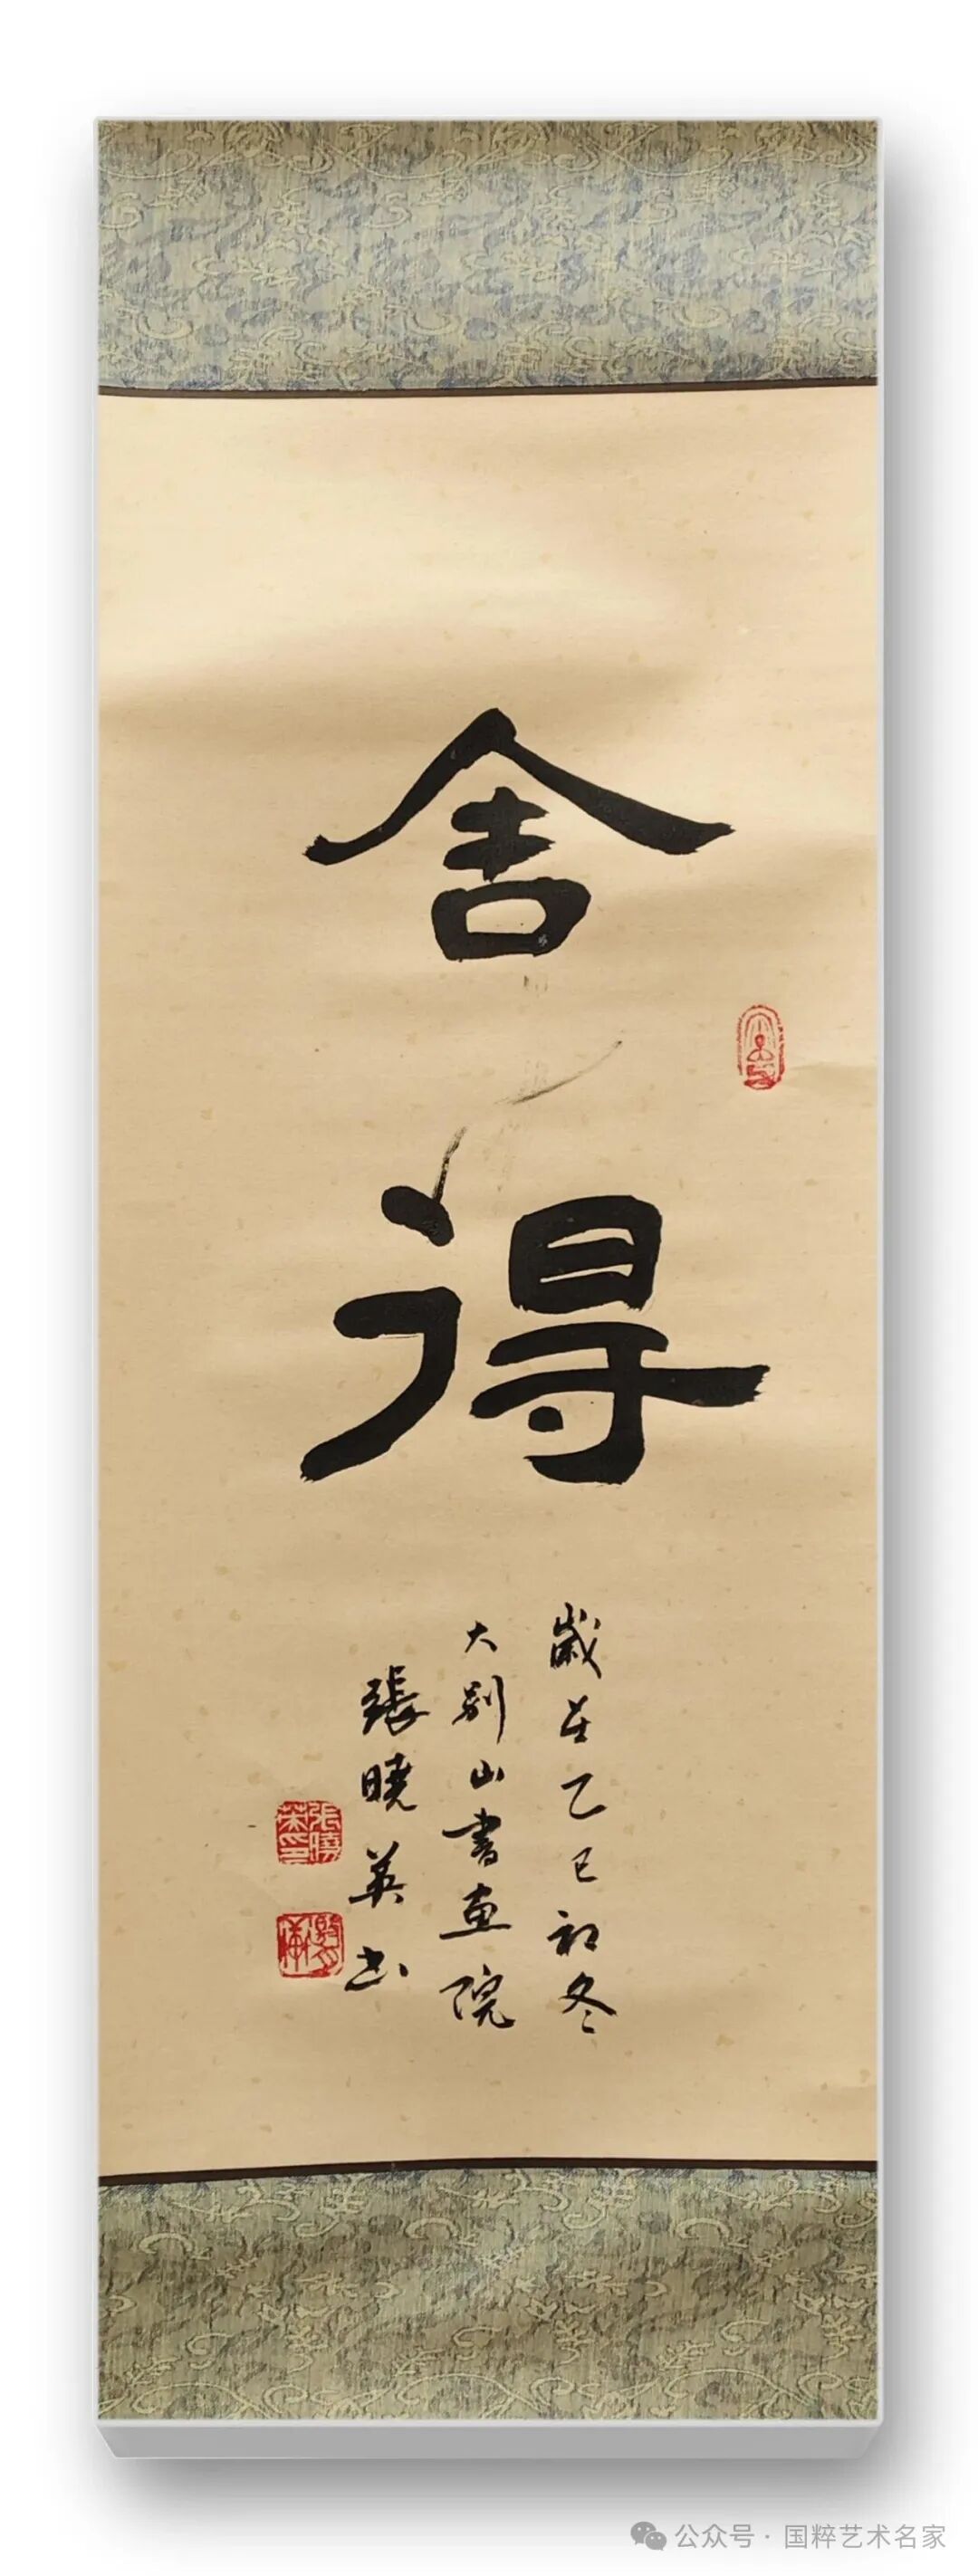 舍得
歲在乙巳初冬
大别山書画院
張曉英书
公众号·国粹艺术名家